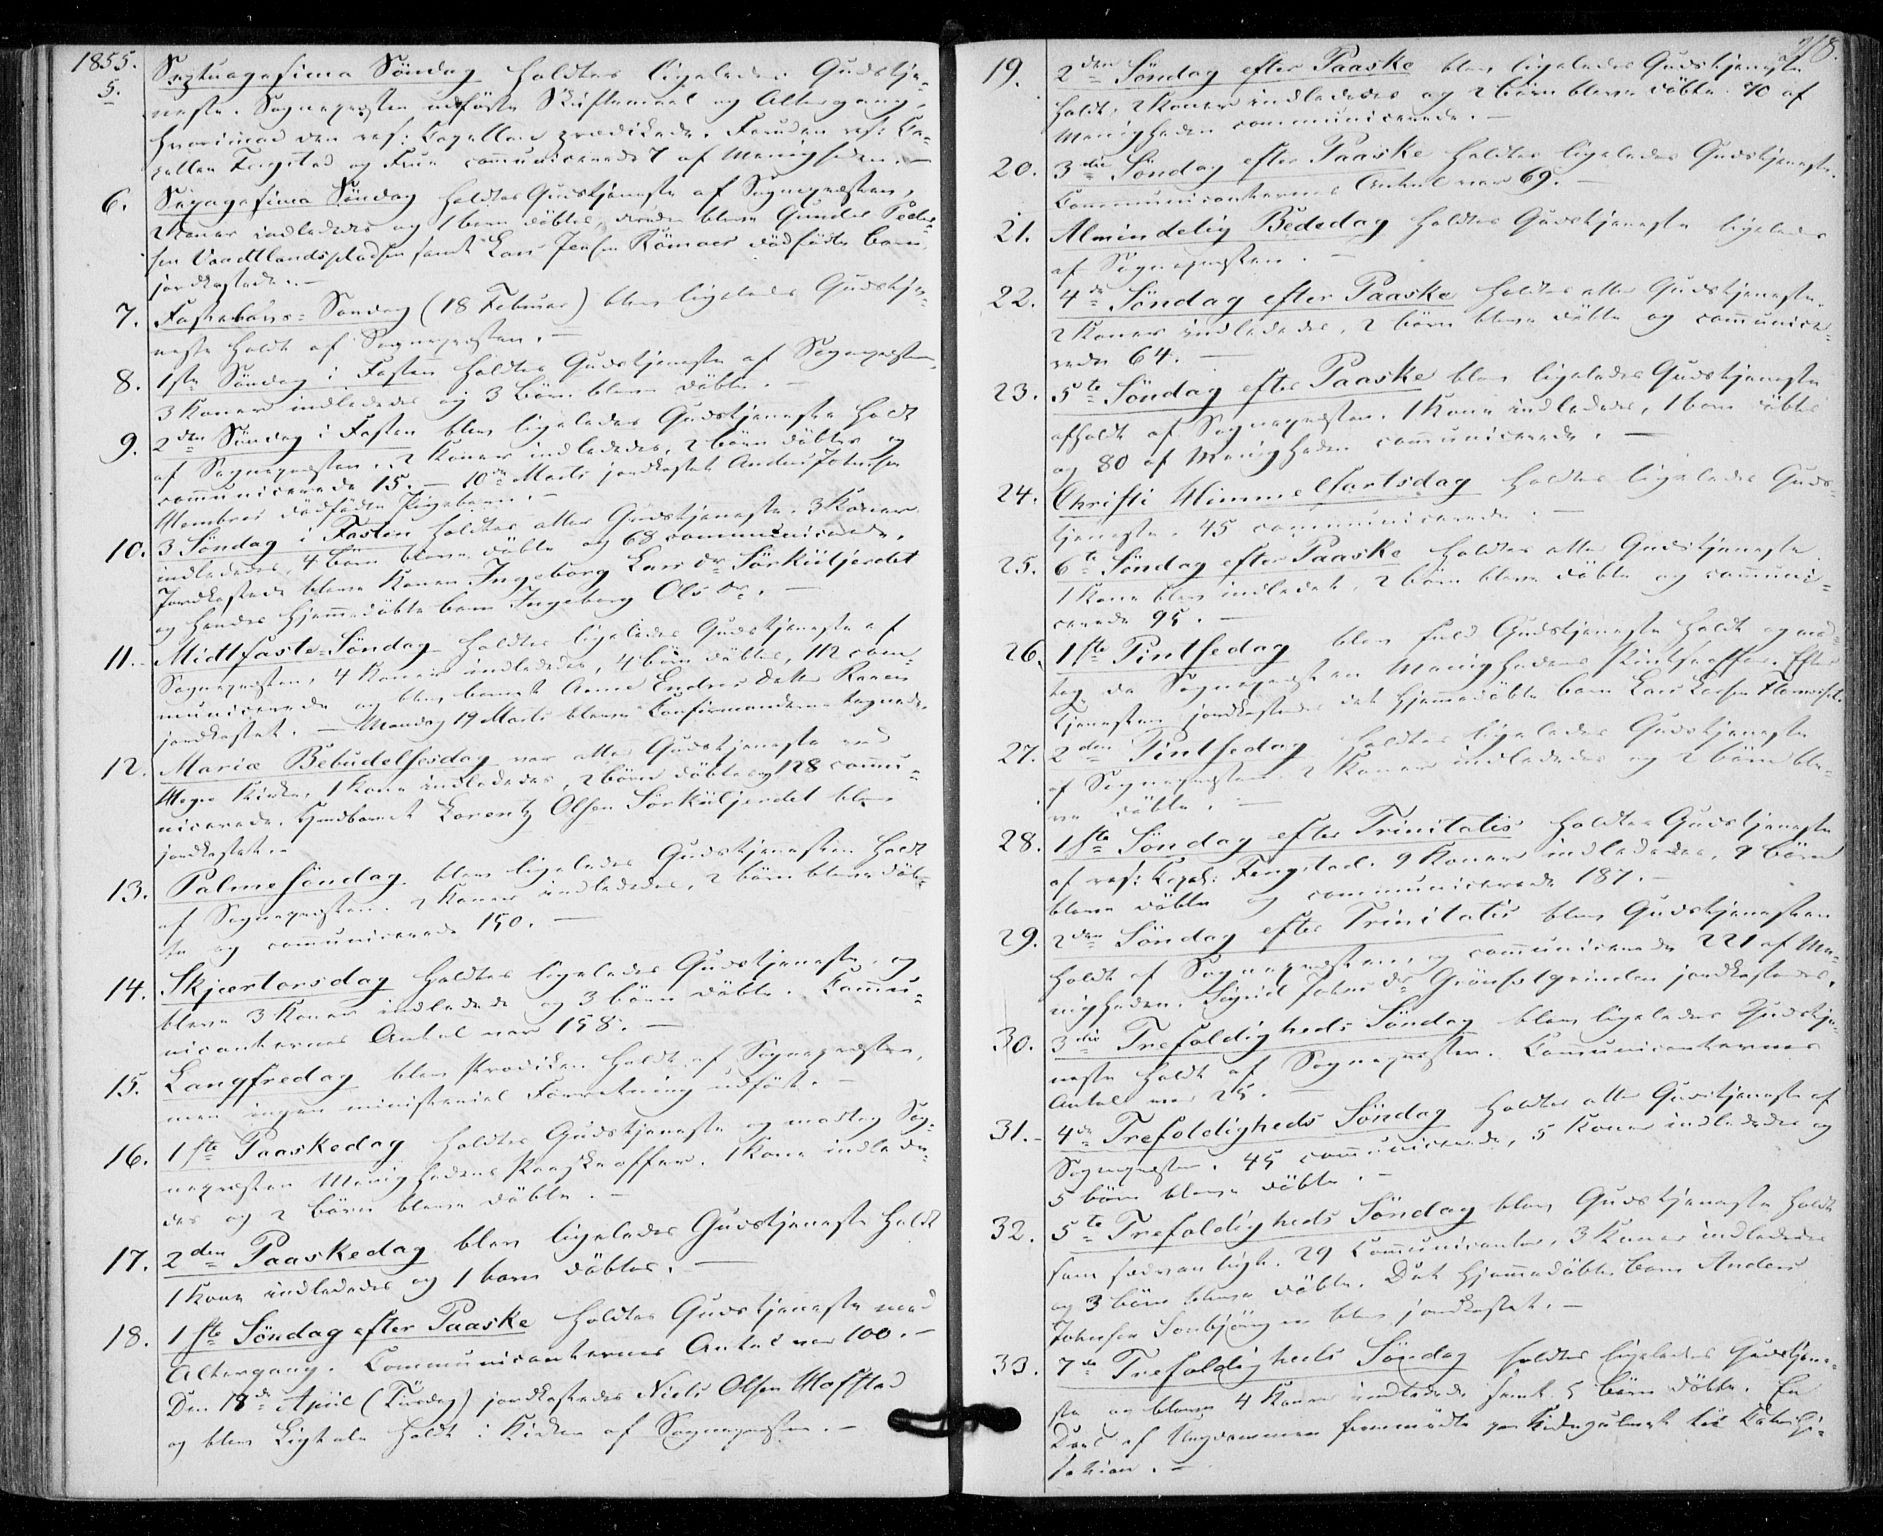 1855.
5. Septuagesima Söndag holdtes ligeledes Gudstje-
neste. Sognepresten udförte Skriftemaal og Altergang,
hvorimod den res: Capellan prædikede. Foruden res: Ca-
pellan Fengstad og Frue communicerede 7 af Menigheden. —
6. Sexagesima Söndag holdtes Gudstjeneste af Sognepresten,
2 Koner indlededes og 1 barn döbtes, derefter bleve Gunder Peder-
sen Vaadtlandspladsen samt Lars Jensen dödfödte barn
jordkastede. —
7. Fastelavns-Söndag (18 Februar) blev ligeledes Gudstje-
neste holdt af Sognepresten. —
8. 1ste Söndag i Fasten holdtes Gudstjeneste af Sognepresten,
3 Koner indlededes og 3 börn bleve döbte. —
9. 2den Söndag i Fasten blev ligeledes Gudstjeneste holdt
af Sognepresten. 2 Koner indlededes, 2 börn döbtes og
communicerede 15. — 10de Marts jordkastet Anders Johnsen
dödfödte Pigebarn. —
10. 3 Söndag i Fasten holdtes atter Gudstjeneste. 3 Koner
indlededes, 4 börn bleve döbte og 68 communicerede.
Jordkastede bleve Konen Ingeborg Lars Dr Sörkiiljordet
og hendes hjemmedöbte barn Ingeborg Ols Dr. —
11. Midtfaste-Söndag holdtes ligeledes Gudstjeneste af
Sognepresten, 4 Koner indlededes, 4 börn döbtes, 112 com-
municerede og blev barnet Anne Endres Datter Raaen
jordkastet. — Mandag 19 Marts bleve Confirmanderne tegnede.
12. Mariæ Bebudelsesdag var atter Gudstjeneste ved
Moe Kirke, 1 Kone indlededes, 2 börn döbtes og 128 commu-
nicerede. Lorentz Olsen Sörkiiljordet blev
jordkastet. —
13. Palmesöndag blev ligeledes Gudstjenesten holdt
af Sognepresten. 2 Koner indlededes, 2 börn bleve döb-
te og communicerede 150. —
14. Skjærtorsdag holdtes ligeledes Gudstjeneste, og
bleve 3 Koner indledede og 3 börn döbte. Commu-
nicanternes Antal var 158. —
15. Langfredag blev Prædiken holdt af Sognepresten,
men ingen ministeriel Forretning udfört. —
16. 1ste Paaskedag holdtes Gudstjeneste og modtog Sog-
nepresten Menighedens Paaskeoffer. 1 Kone indlede-
des og 2 börn bleve döbte. —
17. 2den Paaskedag blev ligeledes Gudstjeneste holdt
1 Kone indlededes og 1 barn döbtes. —
18. 1ste Söndag efter Paaske holdtes Gudstjeneste med
Altergang. Communicanternes Antal var 100. —
Den 18de April (Tirsdag) jordkastedes Niels Olsen Moffstad
og blev Ligtale holdt i Kirken af Sognepresten. —
218.
19. 2den Söndag efter Paaske blev ligeledes Gudstjeneste
holdt. 2 Koner indlededes og 2 börn bleve döbte. 40 af
Menigheden communicerede. —
20. 3die Söndag efter Paaske holdtes ligeledes Gudstjeneste.
Communicanternes Antal var 69. —
21. Almindelig Bededag holdtes Gudstjeneste ligeledes
af Sognepresten. —
22. 4de Söndag efter Paaske holdtes atter Gudstjeneste.
2 Koner indlededes, 2 börn bleve döbte og communice-
rede 64. —
23. 5te Söndag efter Paaske blev ligeledes Gudstjeneste
afholdt af Sognepresten. 1 Kone indlededes, 1 barn döbtes
og 80 af Menigheden communicerede. —
24. Christi Himmelfartsdag holdtes ligeledes Guds-
tjeneste. 45 communicerede. —
25. 6te Söndag efter Paaske holdtes atter Gudstjeneste.
1 Kone blev indledet, 2 börn bleve döbte og communi-
cerede 95. —
26. 1ste Pintsedag blev fuld Gudstjeneste holdt og mod-
tog da Sognepresten Menighedens Pintseoffer. Efter
Tjenesten jordkastedes det hjemmedöbte barn Lars Larsen
27. 2den Pintsedag holdtes ligeledes Gudstjeneste
af Sognepresten. 2 Koner indlededes og 2 börn ble-
ve döbte. —
28. 1ste Söndag efter Trinitatis holdtes Gudstjeneste
af res: Capel: Fengstad. 9 Koner indlededes, 9 börn
bleve döbte og communicerede 187. —
29. 2den Söndag efter Trinitatis blev Gudstjenesten
holdt af Sognepresten, og communicerede 221 af Me-
nigheden. Sigrid Johns Dr jordkastedes.
30. 3die Trefoldigheds Söndag blev ligeledes Gudstje-
neste holdt af Sognepresten. Communicanternes
Antal var 25. —
31. 4de Trefoldigheds Söndag holdtes atter Gudstjeneste af
Sognepresten. 45 communicerede, 5 Koner indlededes og
5 börn bleve döbte. —
32. 5te Trefoldigheds Söndag blev Gudstjeneste holdt
som sædvanligt. 29 Communicanter, 3 Koner indlededes
og 3 börn bleve döbte. Det hjemmedöbte barn Anders
Johnsen blev jordkastet. —
33. 7de Trefoldigheds Söndag holdtes ligeledes Gudstjene-
ste og bleve 4 Koner indledede samt 5 börn döbte. En
Deel af Ungdommen fremmödte paa Kirkegulvet til Catechi-
sation. —